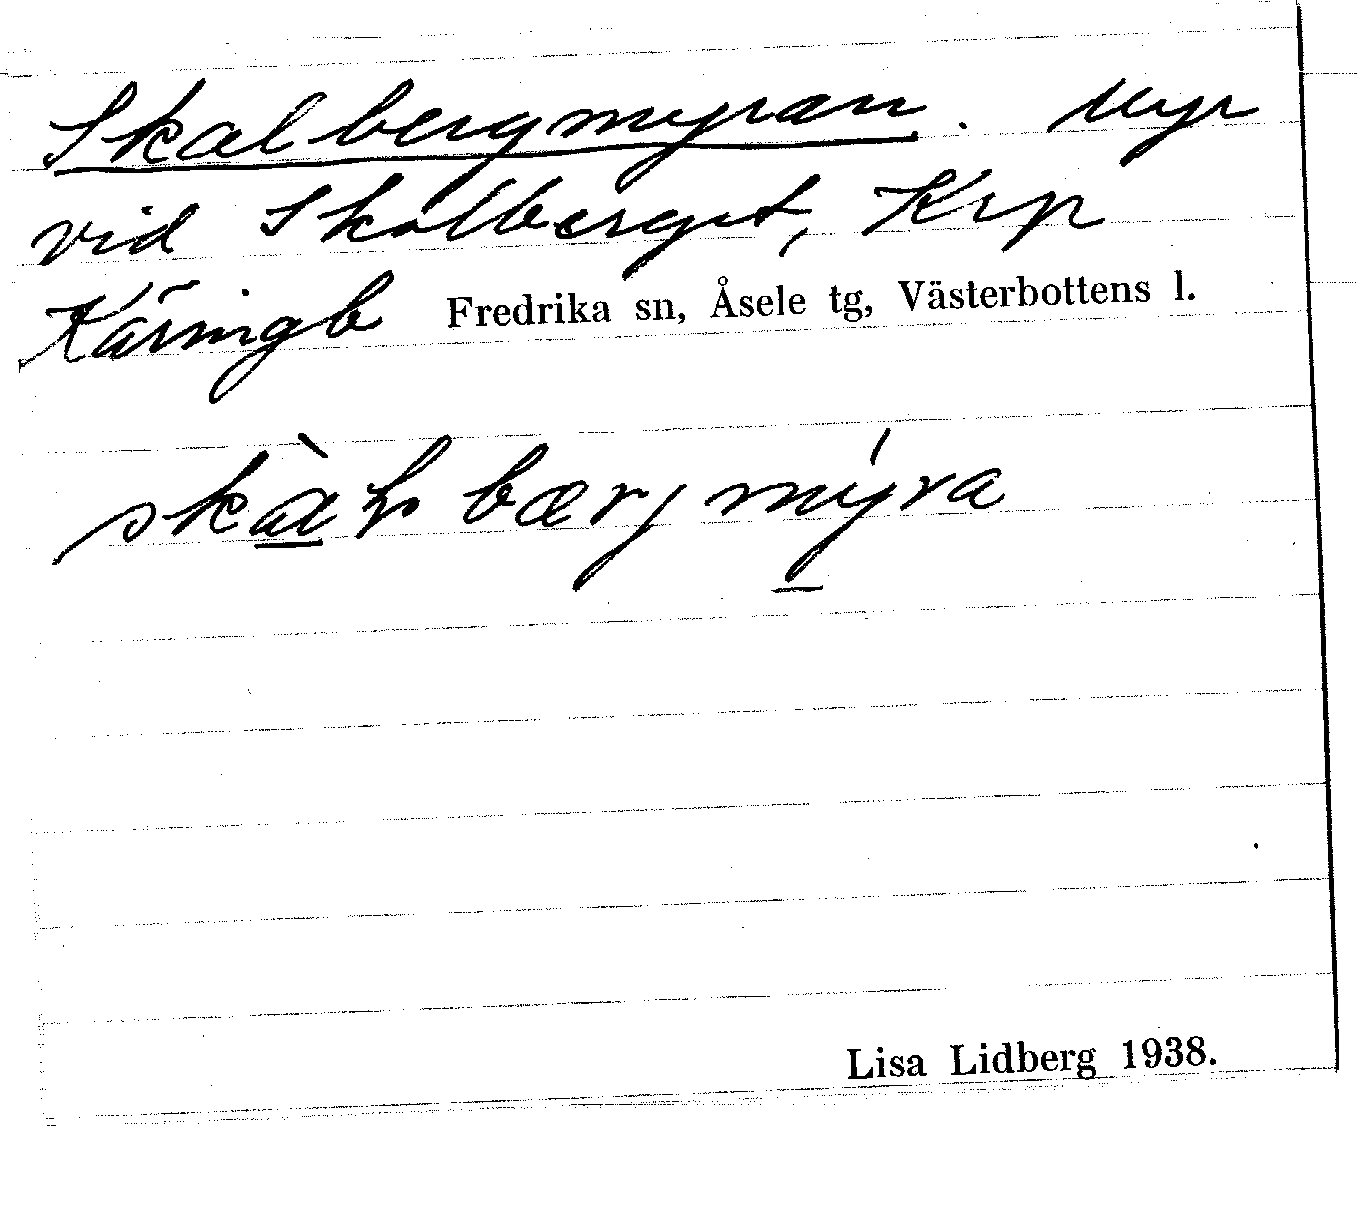 Skalbergmyran. Myr
vid Skalberget, Krp
Käringb Fredrika sn, Åsele tg, Västerbottens l.
bærjmýra
Lisa Lidberg 1938.